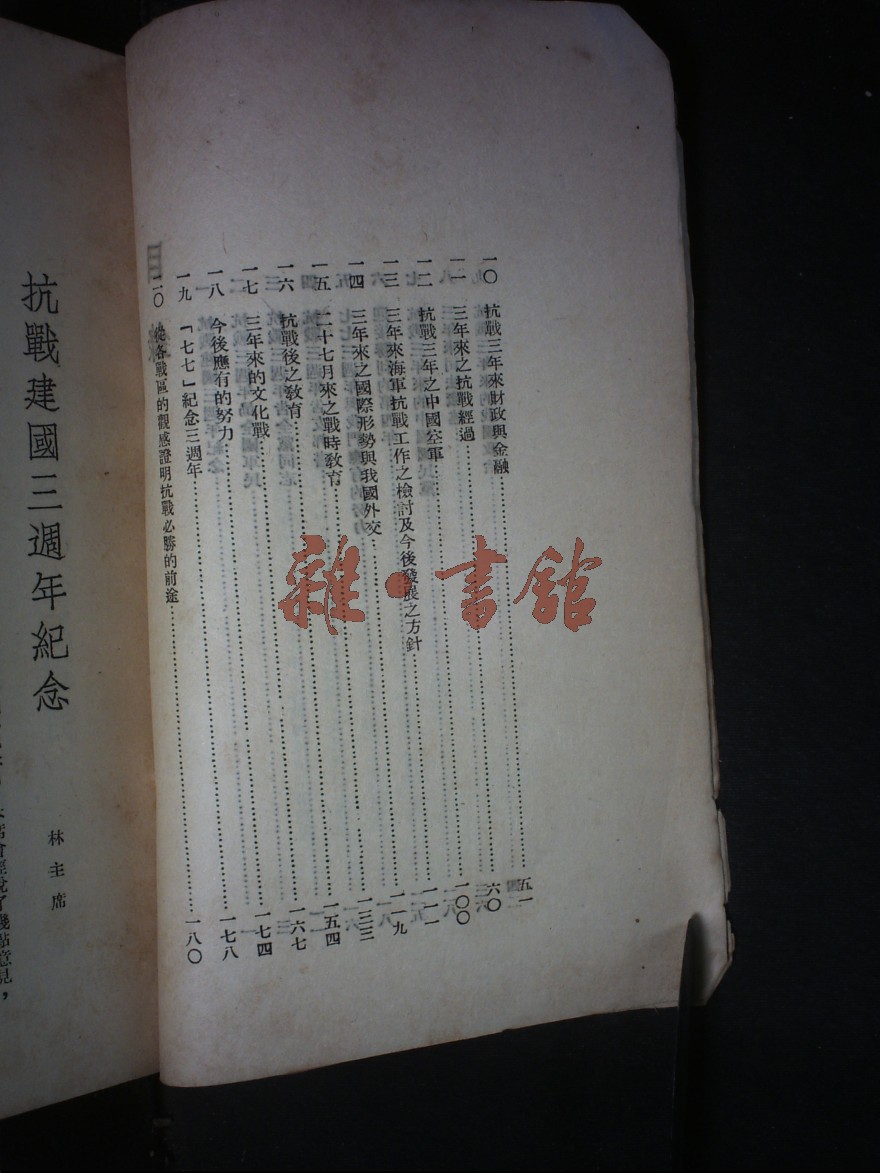 一〇 抗戰三年來財政與金融……五一
一一 三年來之抗戰經過……六〇
一二 抗戰三年之中國空軍……一〇〇
一三 三年來海軍抗戰工作之檢討及今後發展之方針……一一一
一四 三年來之國際形勢與我國外交……一一九
一五 二十七月來之戰時教育……一三三
一六 抗戰後之教育……一五四
一七 三年來的文化戰……一六七
一八 今後應有的努力……一七四
一九 「七七」紀念三週年……一七八
二〇 從各戰區的觀感證明抗戰必勝的前途……一八〇
抗戰建國三週年紀念
林主席
席曾經說了幾點意見，
雜·書館